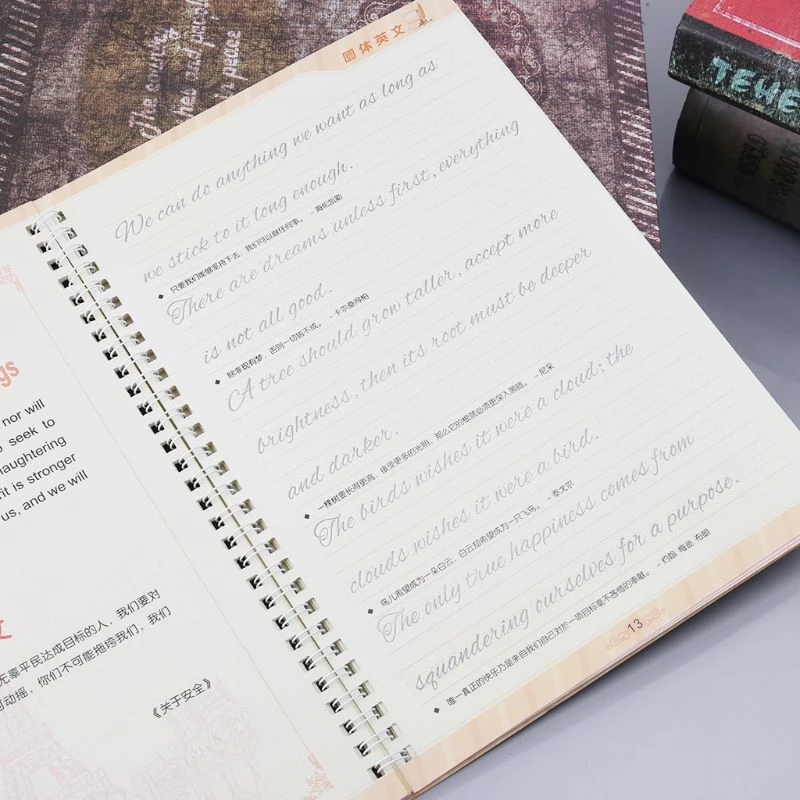 The
peace
TEYE
gs
nor will
seek to
laughtering
it is stronger
us, and we will
文
无辜平民达成目标的人，我们要对
动摇，你们不可能拖垮我们，我们
《关于安全》
圆体英文
We can do anything we want as long as
we stick to it long enough.
只要我们能够坚持下去，我们可以做任何事。 -海伦凯勒
There are dreams unless first, everything
is not all good.
除非现有梦，否则一切皆不成。 -卡尔桑得柏
A tree should grow taller, accept more
brightness, then its root must be deeper
and darker.
一棵树要长得更高，接受更多的光明，那么它的根就必须更深入黑暗。 -尼采
The birds wishes it were a cloud; the
clouds wishes it were a bird.
鸟儿希望成为一朵白云，白云却希望成为一只飞鸟。 -泰戈尔
The only true happiness comes from
squandering ourselves for a purpose.
唯一真正的快乐乃是来自我们自己对於一项目标毫不吝惜的奉献。 -约翰 梅逊 布朗
13